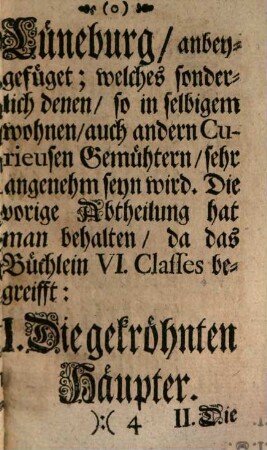 (o)
Lüneburg/ anbey-
gefüget; welches sonder-
lich denen/ so in selbigem
wohnen/ auch andern Cu-
rieusen Gemühtern/ sehr
angenehm seyn wird. Die
vorige Abtheilung hat
man behalten/ da das
Büchlein VI. Classes be-
greifft:
I. Die gekröhnten
Häupter.
):( 4 II. Die